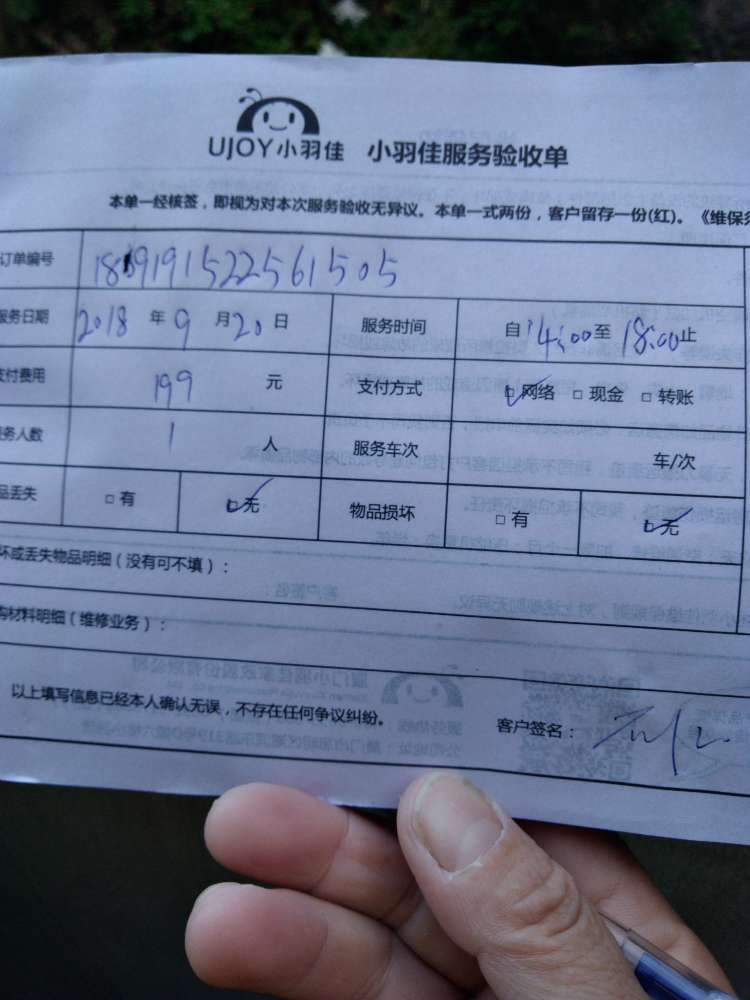 UJOY小羽佳 小羽佳服务验收单
本单一经核签，即视为对本次服务验收无异议。本单一式两份，客户留存一份(红)。《维保
订单编号 1809191522561505
服务日期 2018 年 9 月 20 日 服务时间 自 14:00 至 18:00 止
支付费用 199 元 支付方式 □网络 □现金 □转账
务人数 1 人 服务车次 车/次
品丢失 □有 □无 物品损坏 □有 □无
坏或丢失物品明细（没有可不填）：
购材料明细（维修业务）：
以上填写信息已经本人确认无误，不存在任何争议纠纷。 客户签名：